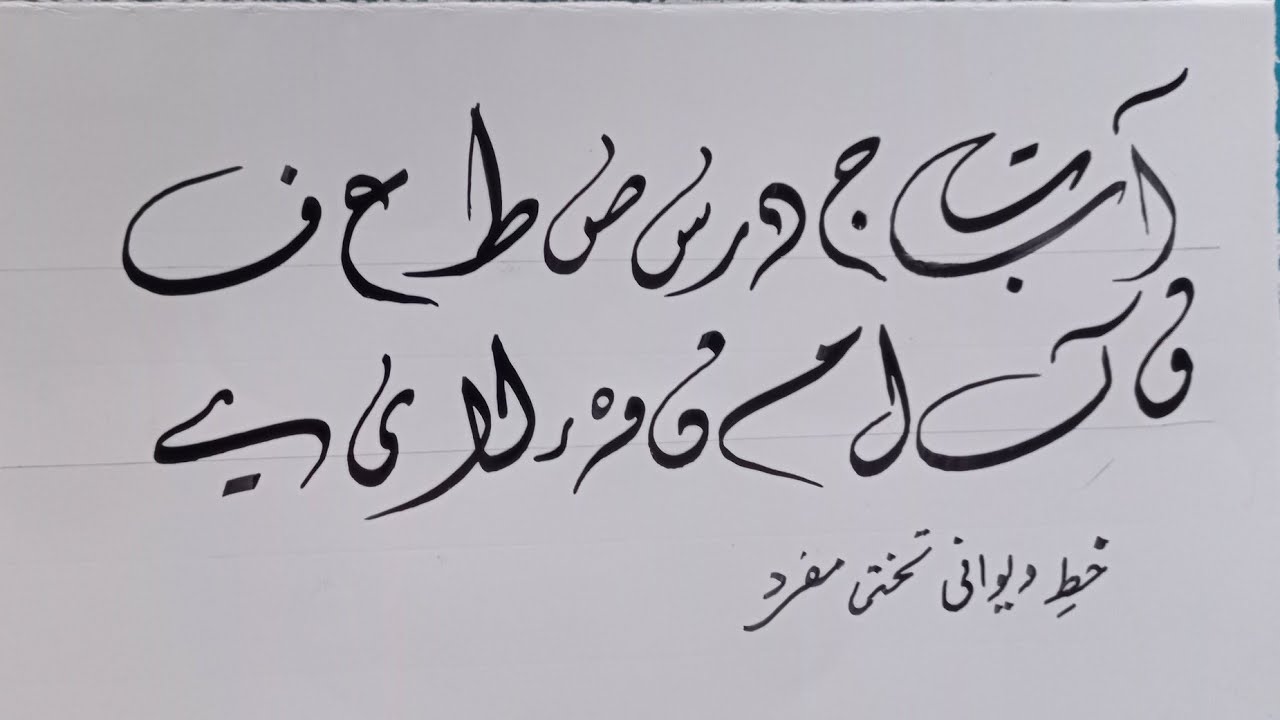 آ ب ت ج د ر س ص ط ع ف
ق ک ل م ن و ہ ء لا ی ے
خطِ دیوانی تختی مفرد